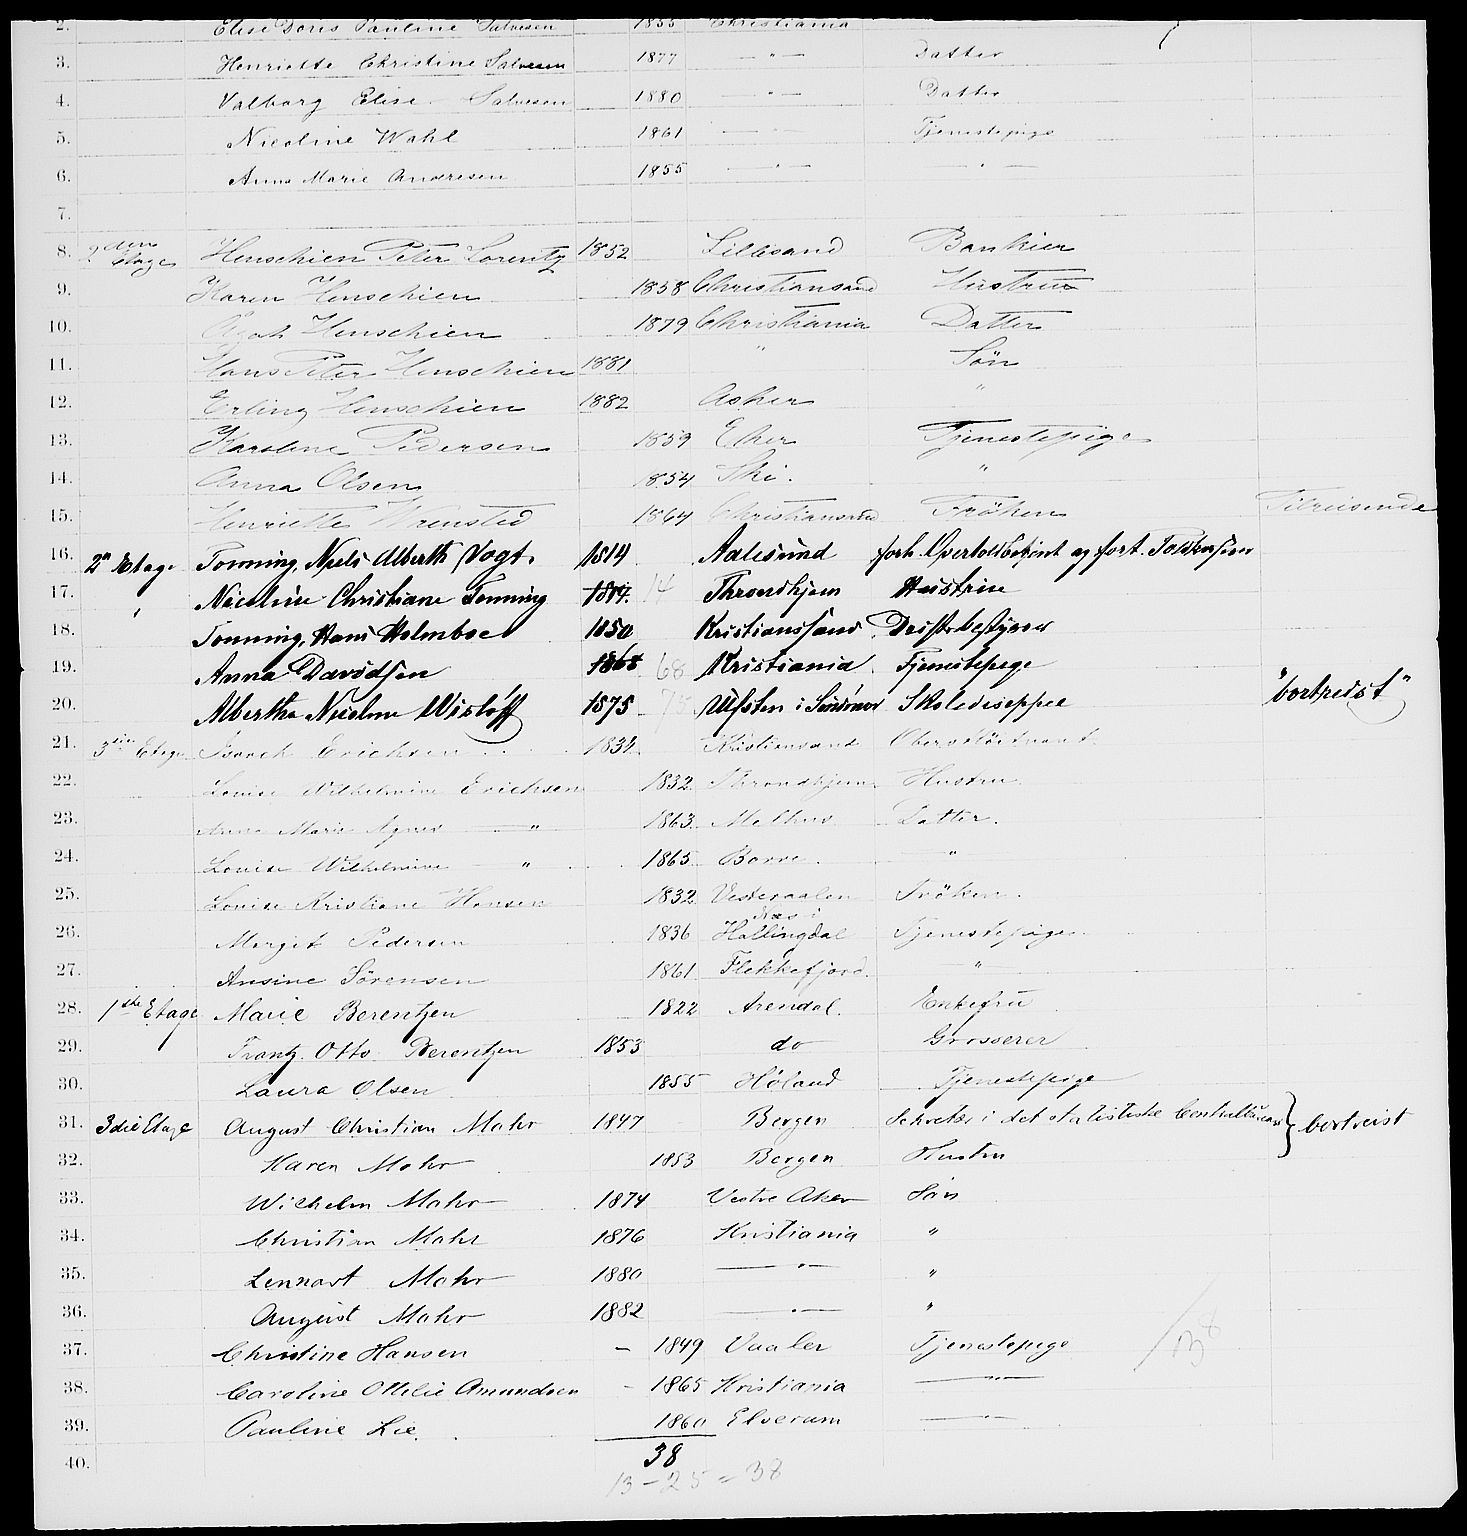 2. Elise Doris Pauline Salvesen 1855 Christiania
3. Henriette Christine Salvesen 1877 — " — Datter
4. Valborg Elise Salvesen 1880 — " — Datter
5. Nicoline Wahl 1861 — " — Tjenestepige
6. Anna Marie Andresen 1855 — " — — " —
7.
8. 2den Etage Henschien Peter Lorentz 1852 Lillesand Bankier
9. Karen Henschien 1858 Christiansand Hustru
10. Henschien 1879 Christiania Datter
11. Hans Peter Henschien 1881 " Søn
12. Erling Henschien 1882 Asker "
13. Karoline Pedersen 1859 Eker Tjenestepige
14. Anna Olsen 1854 Ski. "
15. Henriette Wrensted 1864 Christiansand Frøken Tilreisende
16. 2n Etage Tonning, Niels Alberth Vogt. 1814 Aalesund forh. Overtoldbetjent og fort.
17. " Nicoline Christiane Tonning 1814. 14 Throndhjem Hustrue
18. Tonning, Hans Holmboe 1850 Kristianssand Driftsbestyrer
19. Anna Davidsen 1868 68 Kristiania Tjenestepige
20. Alberthe Nicoline Wisløff 1875 75 Ulfsten i Søndmør Skoledisippel "bortreist"
21. 3die Etage Isaach Erichsen 1834 Kristiansand Oberstløitnant.
22. Louise Wilhelmine Erichsen 1832 Throndhjem Hustru
23. Anna Marie Agnes — " 1863 Melhus Datter.
24. Louise Wilhelmine — " 1865 Borre. — "
25. Louise Kristiane Hansen 1832 Vesteraalen Frøken.
26. Margit Pedersen 1836 Næs i Hallingdal Tjenestepige
27. Ansine Sørensen 1861 Flekkefjord. — "
28. 1ste Etage Marie Berentzen 1822 Arendal. Enkefru
29. Frantz Otto Berentzen 1853 do Grosserer
30. Laura Olsen 1855 Høland Tjenestepige
31. 3die Etage August Christian Mohr 1847 Bergen Sekretær i det statistiske Centralbureau } bortreist
32. Karen Mohr 1853 Bergen Hustru
33. Wilhelm Mohr 1874 Vestre Aker Søn
34. Christian Mohr 1876 Kristiania "
35. Lennart Mohr 1880 — " — "
36. August Mohr 1882 — " — "
37. Christine Hansen – 1849 Vaaler Tjenestepige
38. Caroline Ottilie Amundsen – 1865 Kristiania — " —
39. Pauline Lie. 1860 Elverum — " —
40. 38
13 – 25 = 38